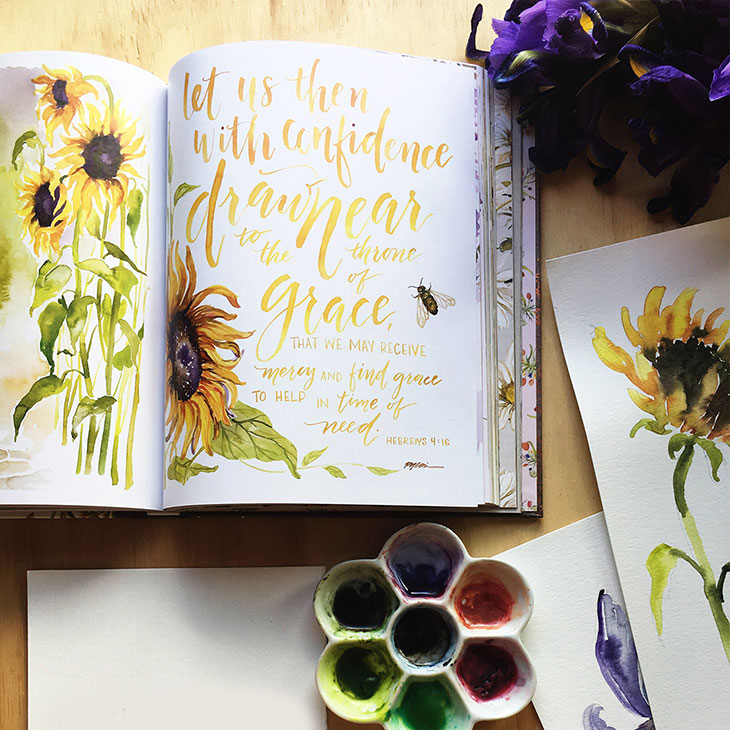 let us then
with confidence
draw near
to the throne
of
grace,
THAT WE MAY RECEIVE
mercy AND find grace
TO HELP IN time of
need.
HEBREWS 4:16